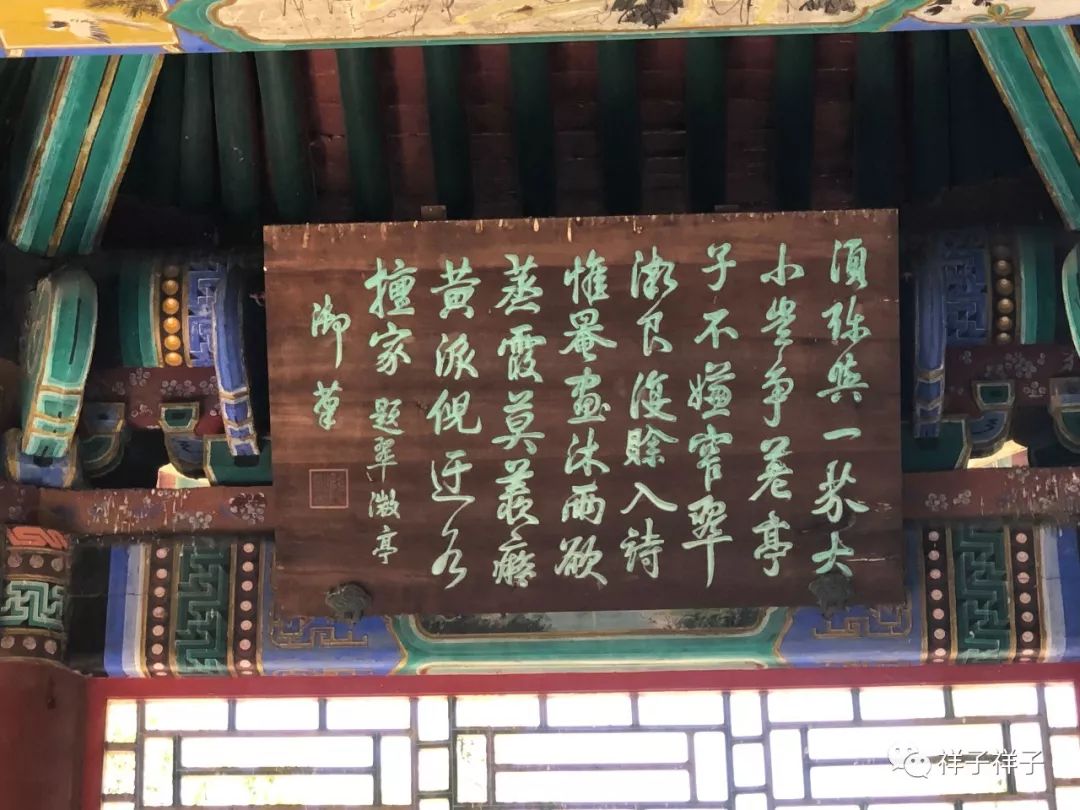 須弥與一芥大
小豈争差亭
子不嫌窄翠
微良復賒入詩
惟罨畫沐雨欲
蒸霞莫羨癡
黄派倪迂各
擅家 題翠微亭
御筆
祥子祥子